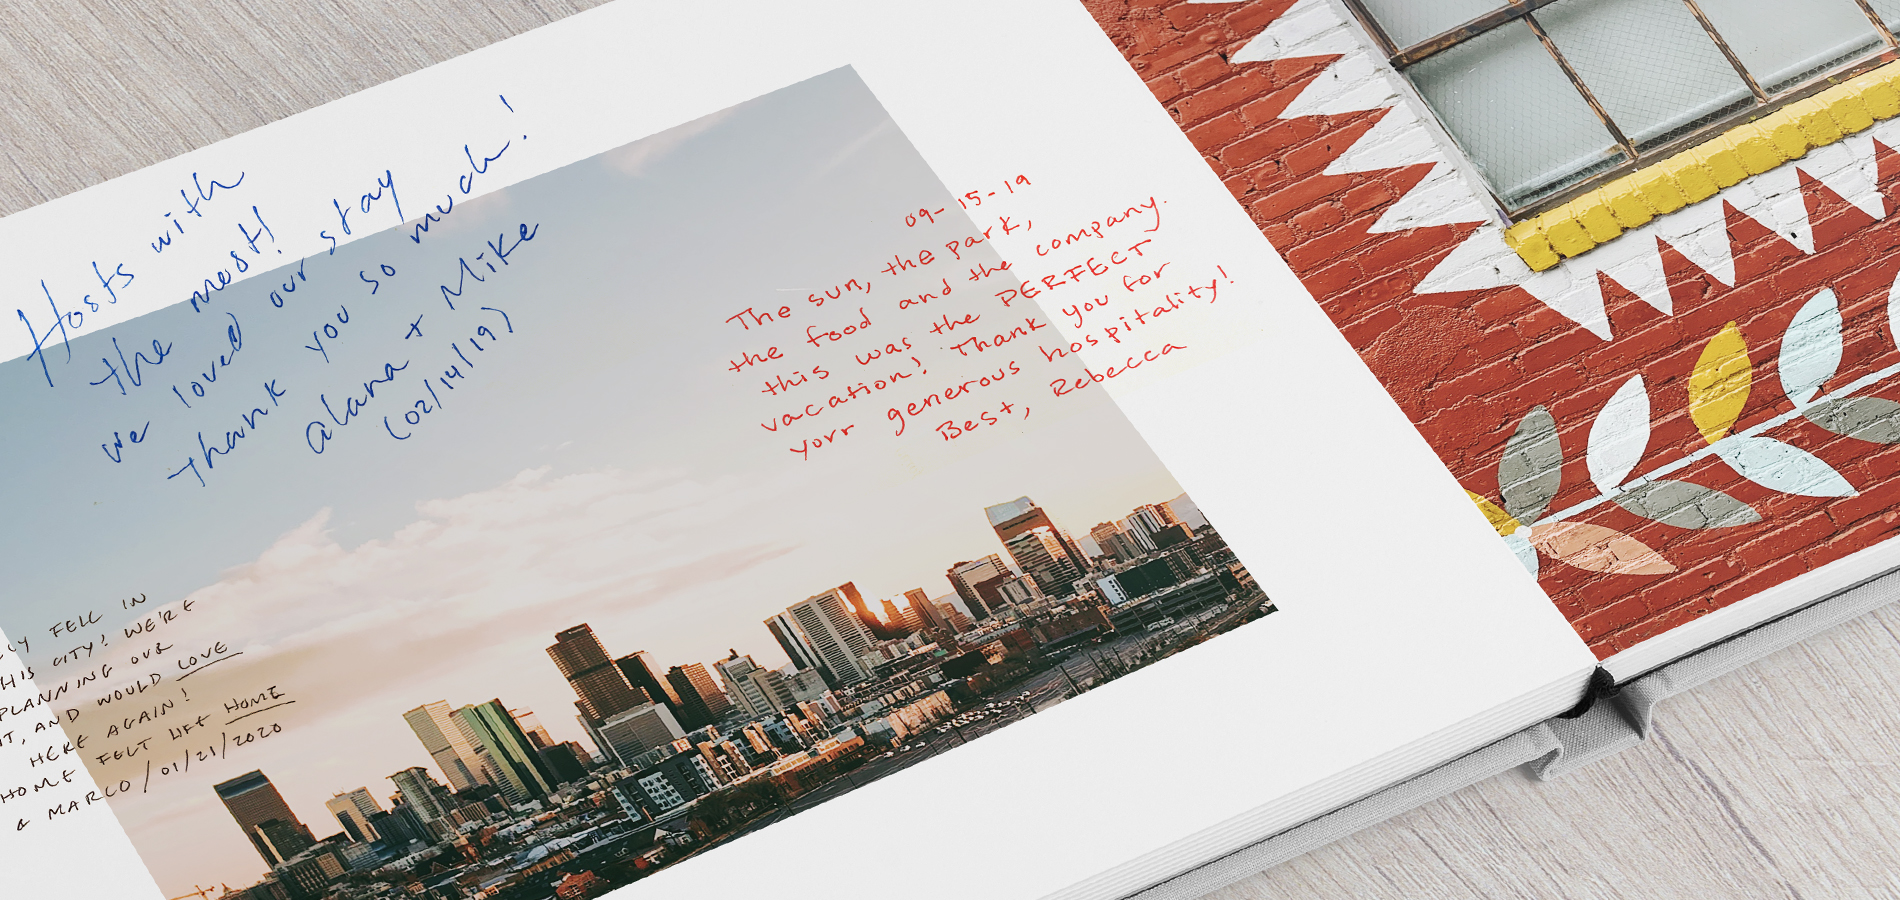 Hosts with
the most!
we loved our stay
thank you so much!
alana + Mike
(02/14/19)
09-15-19
The sun, the park,
the food and the company.
this was the PERFECT
vacation! Thank you for
your generous hospitality!
Best, Rebecca
LY FELL IN
HIS CITY! WE'RE
PLANNING OUR
IT, AND WOULD LOVE
HERE AGAIN!
HOME FELT LIKE HOME
& MARCO / 01/21/2020